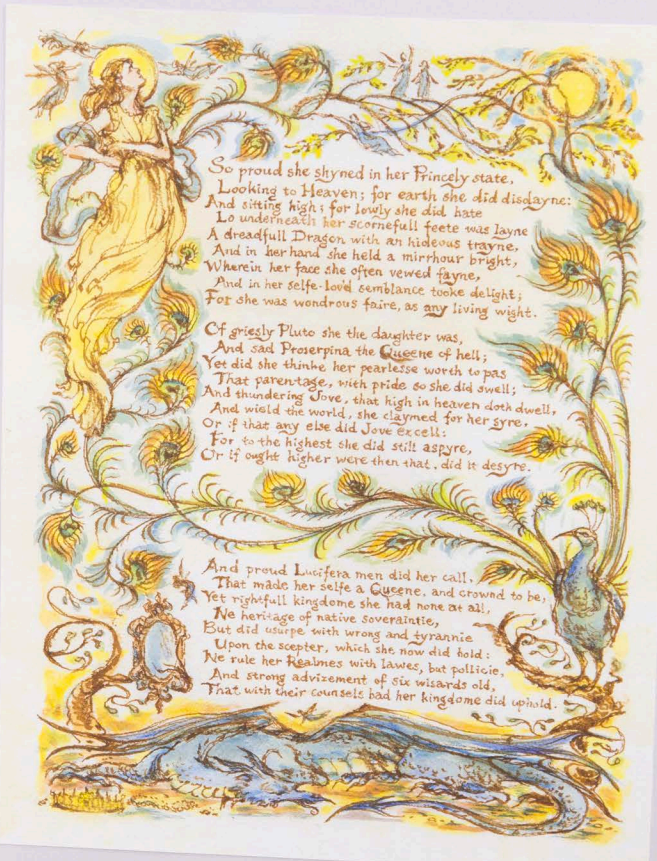 So proud she shyned in her Princely state,
Looking to Heaven; for earth she did disdayne:
And sitting high; for lowly she did hate
Lo underneath her scornefull feete was layne
A dreadfull Dragon with an hideous trayne,
And in her hand she held a mirrhour bright,
Wherein her face she often vewed fayne,
And in her selfe-lov'd semblance tooke delight;
For she was wondrous faire, as any living wight.
Of griesly Pluto she the daughter was,
And sad Proserpina the Queene of hell;
Yet did she thinke her pearlesse worth to pas
That parentage, with pride so she did swell;
And thundering Jove, that high in heaven doth dwell,
And wield the world, she claymed for her syre,
Or if that any else did Jove excell:
For to the highest she did still aspyre,
Or if ought higher were then that, did it desyre.
And proud Lucifera men did her call,
That made her selfe a Queene, and crownd to be,
Yet rightfull kingdome she had none at all,
Ne heritage of native soveraintie,
But did usurpe with wrong and tyrannie
Upon the scepter, which she now did hold:
Ne rule her Realmes with lawes, but pollicie,
And strong advizement of six wisards old,
That with their counsels bad her kingdome did uphold.